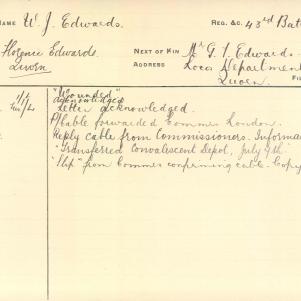 NAME W. J. Edwards. REG. &C. 43rd Bat
Florence Edwards NEXT OF KIN Mr G. J. Edwards
ADDRESS Loco Department
Quorn Quorn
"Wounded"
acknowledged
Letter acknowledged.
Cable forwarded Commrs London.
Reply cable from Commissioners. Informa
"Transferred Convalescent Depot, July 9th"
from Commrs confirming cable. Copy